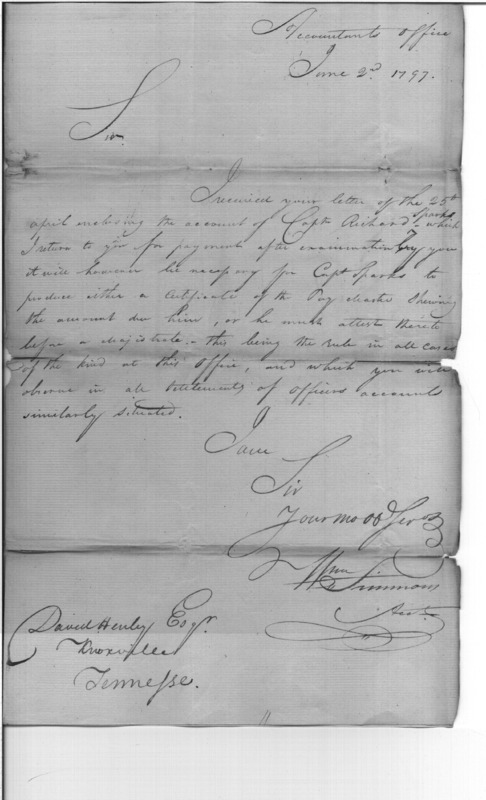 Accountants Office
June 2d 1797.
Sir
I received your letter of the 25th
april enclosing the account of Capt Richard Sparks, which
I return to you for payment after examination by you
it will however be necessary for Capt Sparks to
produce either a Certificate of the Pay Master Shewing
the amount due him, or he must attest thereto
before a Magistrate. – this being the rule in all cases
of the kind at this Office, and which you will
observe in all settlements of Officers accounts
similarly situated.
I am
Sir
Your mo ob Serv
Wm Simmons
Acct.
David Henley Esqr.
Knoxville
Tennessee.